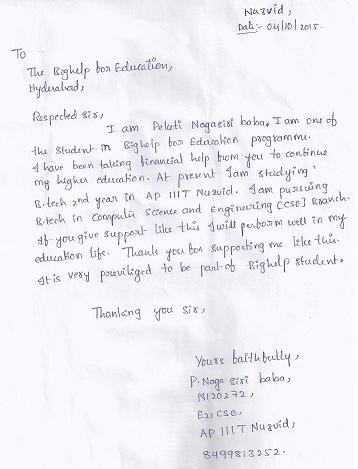 Nuzvid,
Date:- 04/10/2015.
To
The Bighelp for Education,
Hyderabad,
Respected Sir,
I am Peleti Nagasiri baba. I am one of
the student in Bighelp for Education programme.
I have been taking financial help from you to continue
my higher education. At present I am studying
B.tech 2nd year in AP IIIT Nuzvid. I am pursuing
B.tech in Computer Science and Engineering [CSE] Branch.
If you give support like this I will perform well in my
education life. Thank you for supporting me like this.
It is very previliged to be part of Bighelp student.
Thanking you Sir,
Yours faithfully,
P. Naga Siri baba,
N120272,
E2, CSE,
AP IIIT Nuzvid,
8499813252.